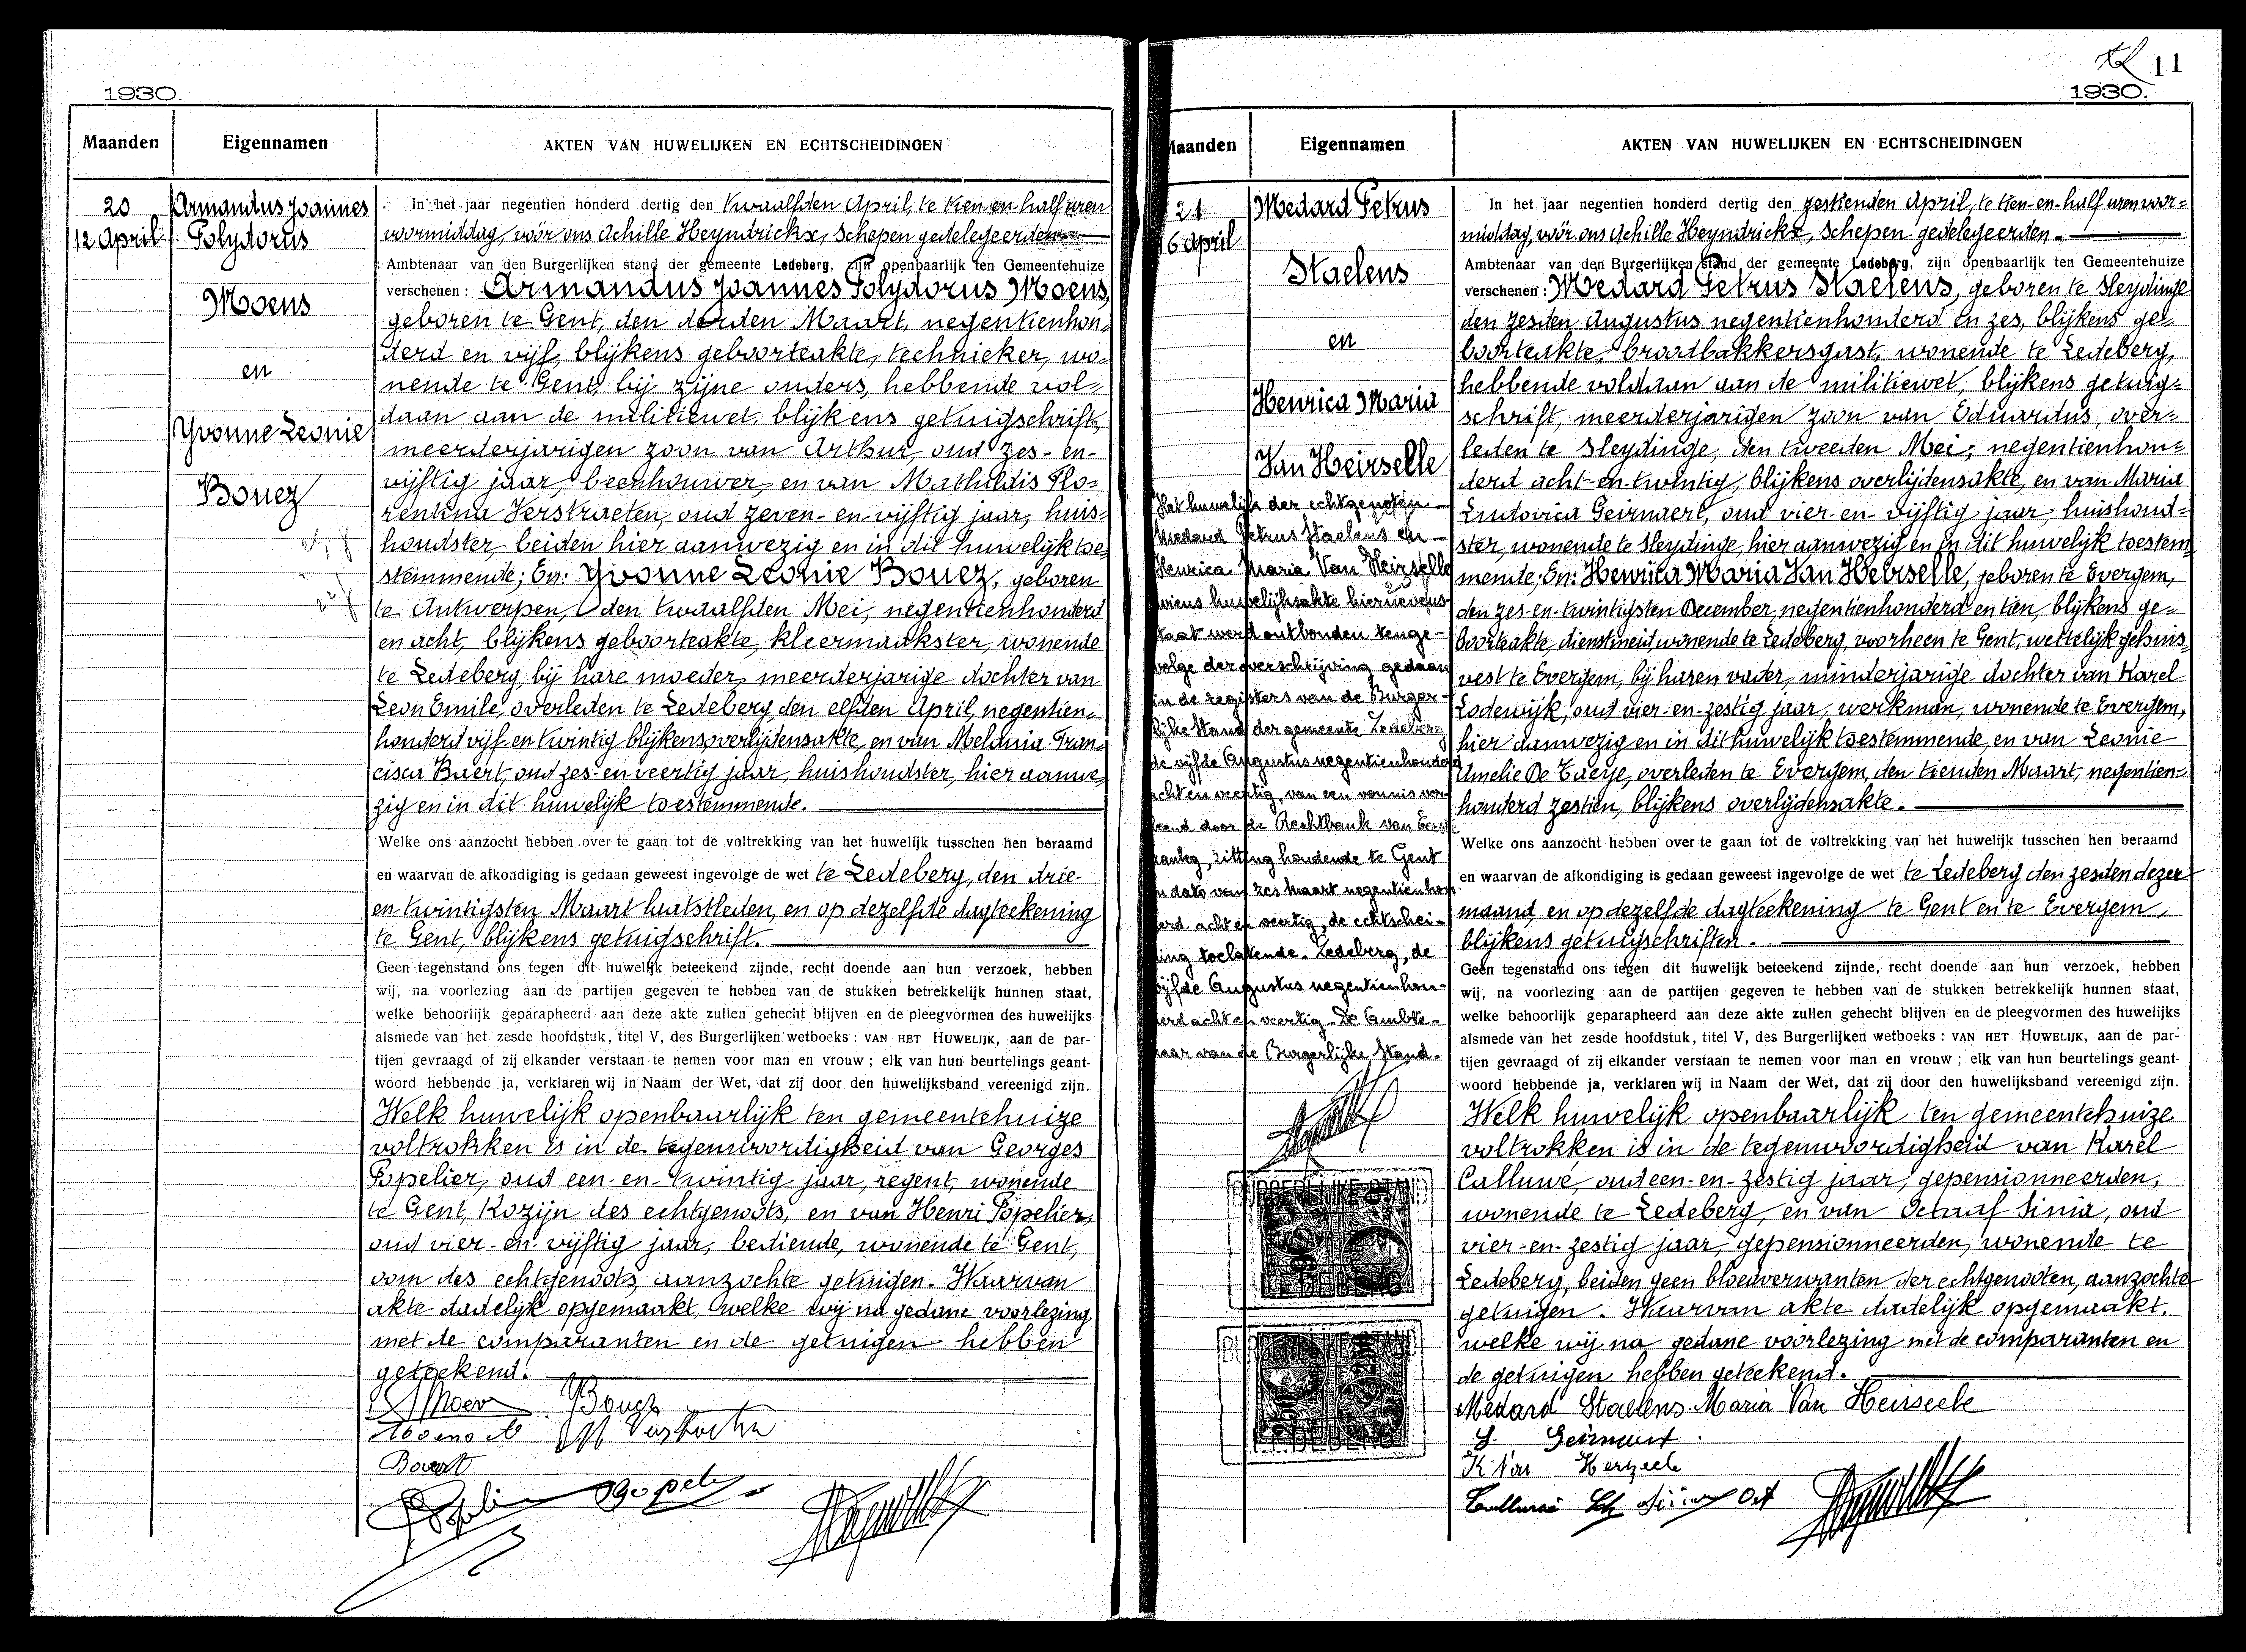 1930.
Maanden
Eigennamen
AKTEN VAN HUWELIJKEN EN ECHTSCHEIDINGEN
20
12 April
Armandus Joannes
Polydorus
Moens
en
Yvonne Leonie
Bouez
In het jaar negentien honderd dertig den twaalfden April, te tien en half uren
voormiddag, vóór ons Achille Heyndrickx, Schepen gedelegeerden
Ambtenaar van den Burgerlijken stand der gemeente Ledeberg, zijn openbaarlijk ten Gemeentehuize
verschenen : Armandus Joannes Polydorus Moens,
geboren te Gent, den derden Maart, negentienhon-
derd en vijf, blijkens geboorteakte, technieker, wo-
nende te Gent, bij zijne ouders, hebbende vol-
daan aan de militiewet, blijkens getuigschrift,
meerderjarigen zoon van Arthur, oud zes-en-
vijftig jaar, beenhouwer, en van Mathildis Flo-
rentina Verstraeten, oud zeven-en-vijftig jaar, huis-
houdster, beiden hier aanwezig en in dit huwelijk toe-
stemmende; En: Yvonne Leonie Bouez, geboren
te Antwerpen, den twaalfden Mei, negentienhonderd
en acht, blijkens geboorteakte, kleermaakster, wonende
te Ledeberg, bij hare moeder, meerderjarige dochter van
Leon Emile, overleden te Ledeberg, den elfden April, negentien-
honderd vijf-en-twintig blijkens overlijdensakte, en van Melania Fran-
cisca Baert, oud zes-en-veertig jaar, huishoudster, hier aanwe-
zig en in dit huwelijk toestemmende.
Welke ons aanzocht hebben over te gaan tot de voltrekking van het huwelijk tusschen hen beraamd
en waarvan de afkondiging is gedaan geweest ingevolge de wet te Ledeberg, den drie-
en twintigsten Maart laatstleden, en op dezelfde dagteekening
te Gent, blijkens getuigschrift.
Geen tegenstand ons tegen dit huwelijk beteekend zijnde, recht doende aan hun verzoek, hebben
wij, na voorlezing aan de partijen gegeven te hebben van de stukken betrekkelijk hunnen staat,
welke behoorlijk geparapheerd aan deze akte zullen gehecht blijven en de pleegvormen des huwelijks
alsmede van het zesde hoofdstuk, titel V, des Burgerlijken wetboeks : VAN HET HUWELIJK, aan de par-
tijen gevraagd of zij elkander verstaan te nemen voor man en vrouw ; elk van hun beurtelings geant-
woord hebbende ja, verklaren wij in Naam der Wet, dat zij door den huwelijksband vereenigd zijn.
Welk huwelijk openbaarlijk ten gemeentehuize
voltrokken is in de tegenwoordigheid van Georges
Popelier, oud een-en-twintig jaar, regent, wonende
te Gent, Kozijn des echtgenoots, en van Henri Popelier,
oud vier-en-vijftig jaar, bediende, wonende te Gent,
oom des echtgenoots, aanzochte getuigen. Waarvan
akte dadelijk opgemaakt, welke wij na gedane voorlezing
met de comparanten en de getuigen hebben
geteekend.
YBouez
Moens A
Baert
11
1930.
Maanden
Eigennamen
AKTEN VAN HUWELIJKEN EN ECHTSCHEIDINGEN
21
16 April
Medard Petrus
Staelens
en
Henrica Maria
Van Heirselle
Het huwelijk der echtgenoten
Medard Petrus Staelens en
Henrica Maria Van Heirselle
wiens huwelijksakte hiernevens
staat werd ontbonden tenge-
volge der overschrijving gedaan
in de registers van de Burger-
lijke Stand der gemeente Ledeberg
de vijfde Augustus negentienhonderd
acht en veertig, van een vonnis ver-
leend door de Rechtbank van Eerste
aanleg, zitting houdende te Gent
in dato van zes maart negentienhon-
derd acht en veertig, de echtschei-
ding toelatende. Ledeberg, de
vijfde Augustus negentienhon-
derd acht en veertig. De Ambte-
naar van de Burgerlijke Stand.
In het jaar negentien honderd dertig den zestienden April, te tien-en-half uren voor-
middag, vóór ons Achille Heyndrickx, Schepen gedelegeerden.
Ambtenaar van den Burgerlijken stand der gemeente Ledeberg, zijn openbaarlijk ten Gemeentehuize
verschenen : Medard Petrus Staelens, geboren te Sleydinge
den zesden Augustus negentienhonderd en zes, blijkens ge-
boorteakte, broodbakkersgast, wonende te Ledeberg,
hebbende voldaan aan de militiewet, blijkens getuig-
schrift, meerderjarigen zoon van Eduardus, over-
leden te Sleydinge, den tweeden Mei, negentienhon-
derd acht-en-twintig, blijkens overlijdensakte, en van Maria
Ludovica Geirnaert, oud vier-en-vijftig jaar, huishoud-
ster, wonende te Sleydinge, hier aanwezig en in dit huwelijk toestem
mende; En: Henrica Maria Van Heirselle, geboren te Evergem,
den zes-en-twintigsten December, negentienhonderd en tien, blijkens ge-
boorteakte, dienstmeid, wonende te Ledeberg, voorheen te Gent, wettelijk gehuis-
vest te Evergem, bij haren vader, minderjarige dochter van Karel
Lodewijk, oud vier-en-zestig jaar, werkman, wonende te Evergem,
hier aanwezig en in dit huwelijk toestemmende, en van Leonie
Amelie De Taeye, overleden te Evergem, den tienden Maart, negentien-
honderd zestien, blijkens overlijdensakte.
Welke ons aanzocht hebben over te gaan tot de voltrekking van het huwelijk tusschen hen beraamd
en waarvan de afkondiging is gedaan geweest ingevolge de wet te Ledeberg den zesden dezer
maand en op dezelfde dagteekening te Gent en te Evergem,
blijkens getuigschriften.
Geen tegenstand ons tegen dit huwelijk beteekend zijnde, recht doende aan hun verzoek, hebben
wij, na voorlezing aan de partijen gegeven te hebben van de stukken betrekkelijk hunnen staat,
welke behoorlijk geparapheerd aan deze akte zullen gehecht blijven en de pleegvormen des huwelijks
alsmede van het zesde hoofdstuk, titel V, des Burgerlijken wetboeks : VAN HET HUWELIJK, aan de par-
tijen gevraagd of zij elkander verstaan te nemen voor man en vrouw ; elk van hun beurtelings geant-
woord hebbende ja, verklaren wij in Naam der Wet, dat zij door den huwelijksband vereenigd zijn.
Welk huwelijk openbaarlijk ten gemeentehuize
voltrokken is in de tegenwoordigheid van Karel
Calluwé, oud een-en-zestig jaar, gepensionneerden,
wonende te Ledeberg, en van Octaaf Sinia, oud
vier-en-zestig jaar, gepensionneerden, wonende te
Ledeberg, beiden geen bloedverwanten der echtgenooten, aanzochte
getuigen. Waarvan akte dadelijk opgemaakt,
welke wij na gedane voorlezing met de comparanten en
de getuigen hebben geteekend.
Medard Staelens Maria Van Heirseele